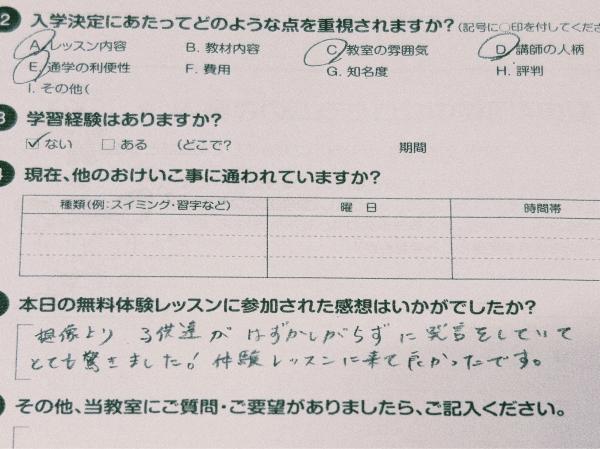 2 入学決定にあたってどのような点を重視されますか?(記号に○印を付してくださ
A. レッスン内容 B. 教材内容 C. 教室の雰囲気 D. 講師の人柄
E. 通学の利便性 F. 費用 G. 知名度 H. 評判
I. その他(
3 学習経験はありますか?
ない ある (どこで? 期間
現在、他のおけいこ事に通われていますか?
種類(例:スイミング・習字など) 曜 日 時間帯
本日の無料体験レッスンに参加された感想はいかがでしたか?
想像より 子供達が はずかしがらずに 発言をしていて
とても驚きました! 体験レッスンに来て良かったです。
その他、当教室にご質問・ご要望がありましたら、ご記入ください。